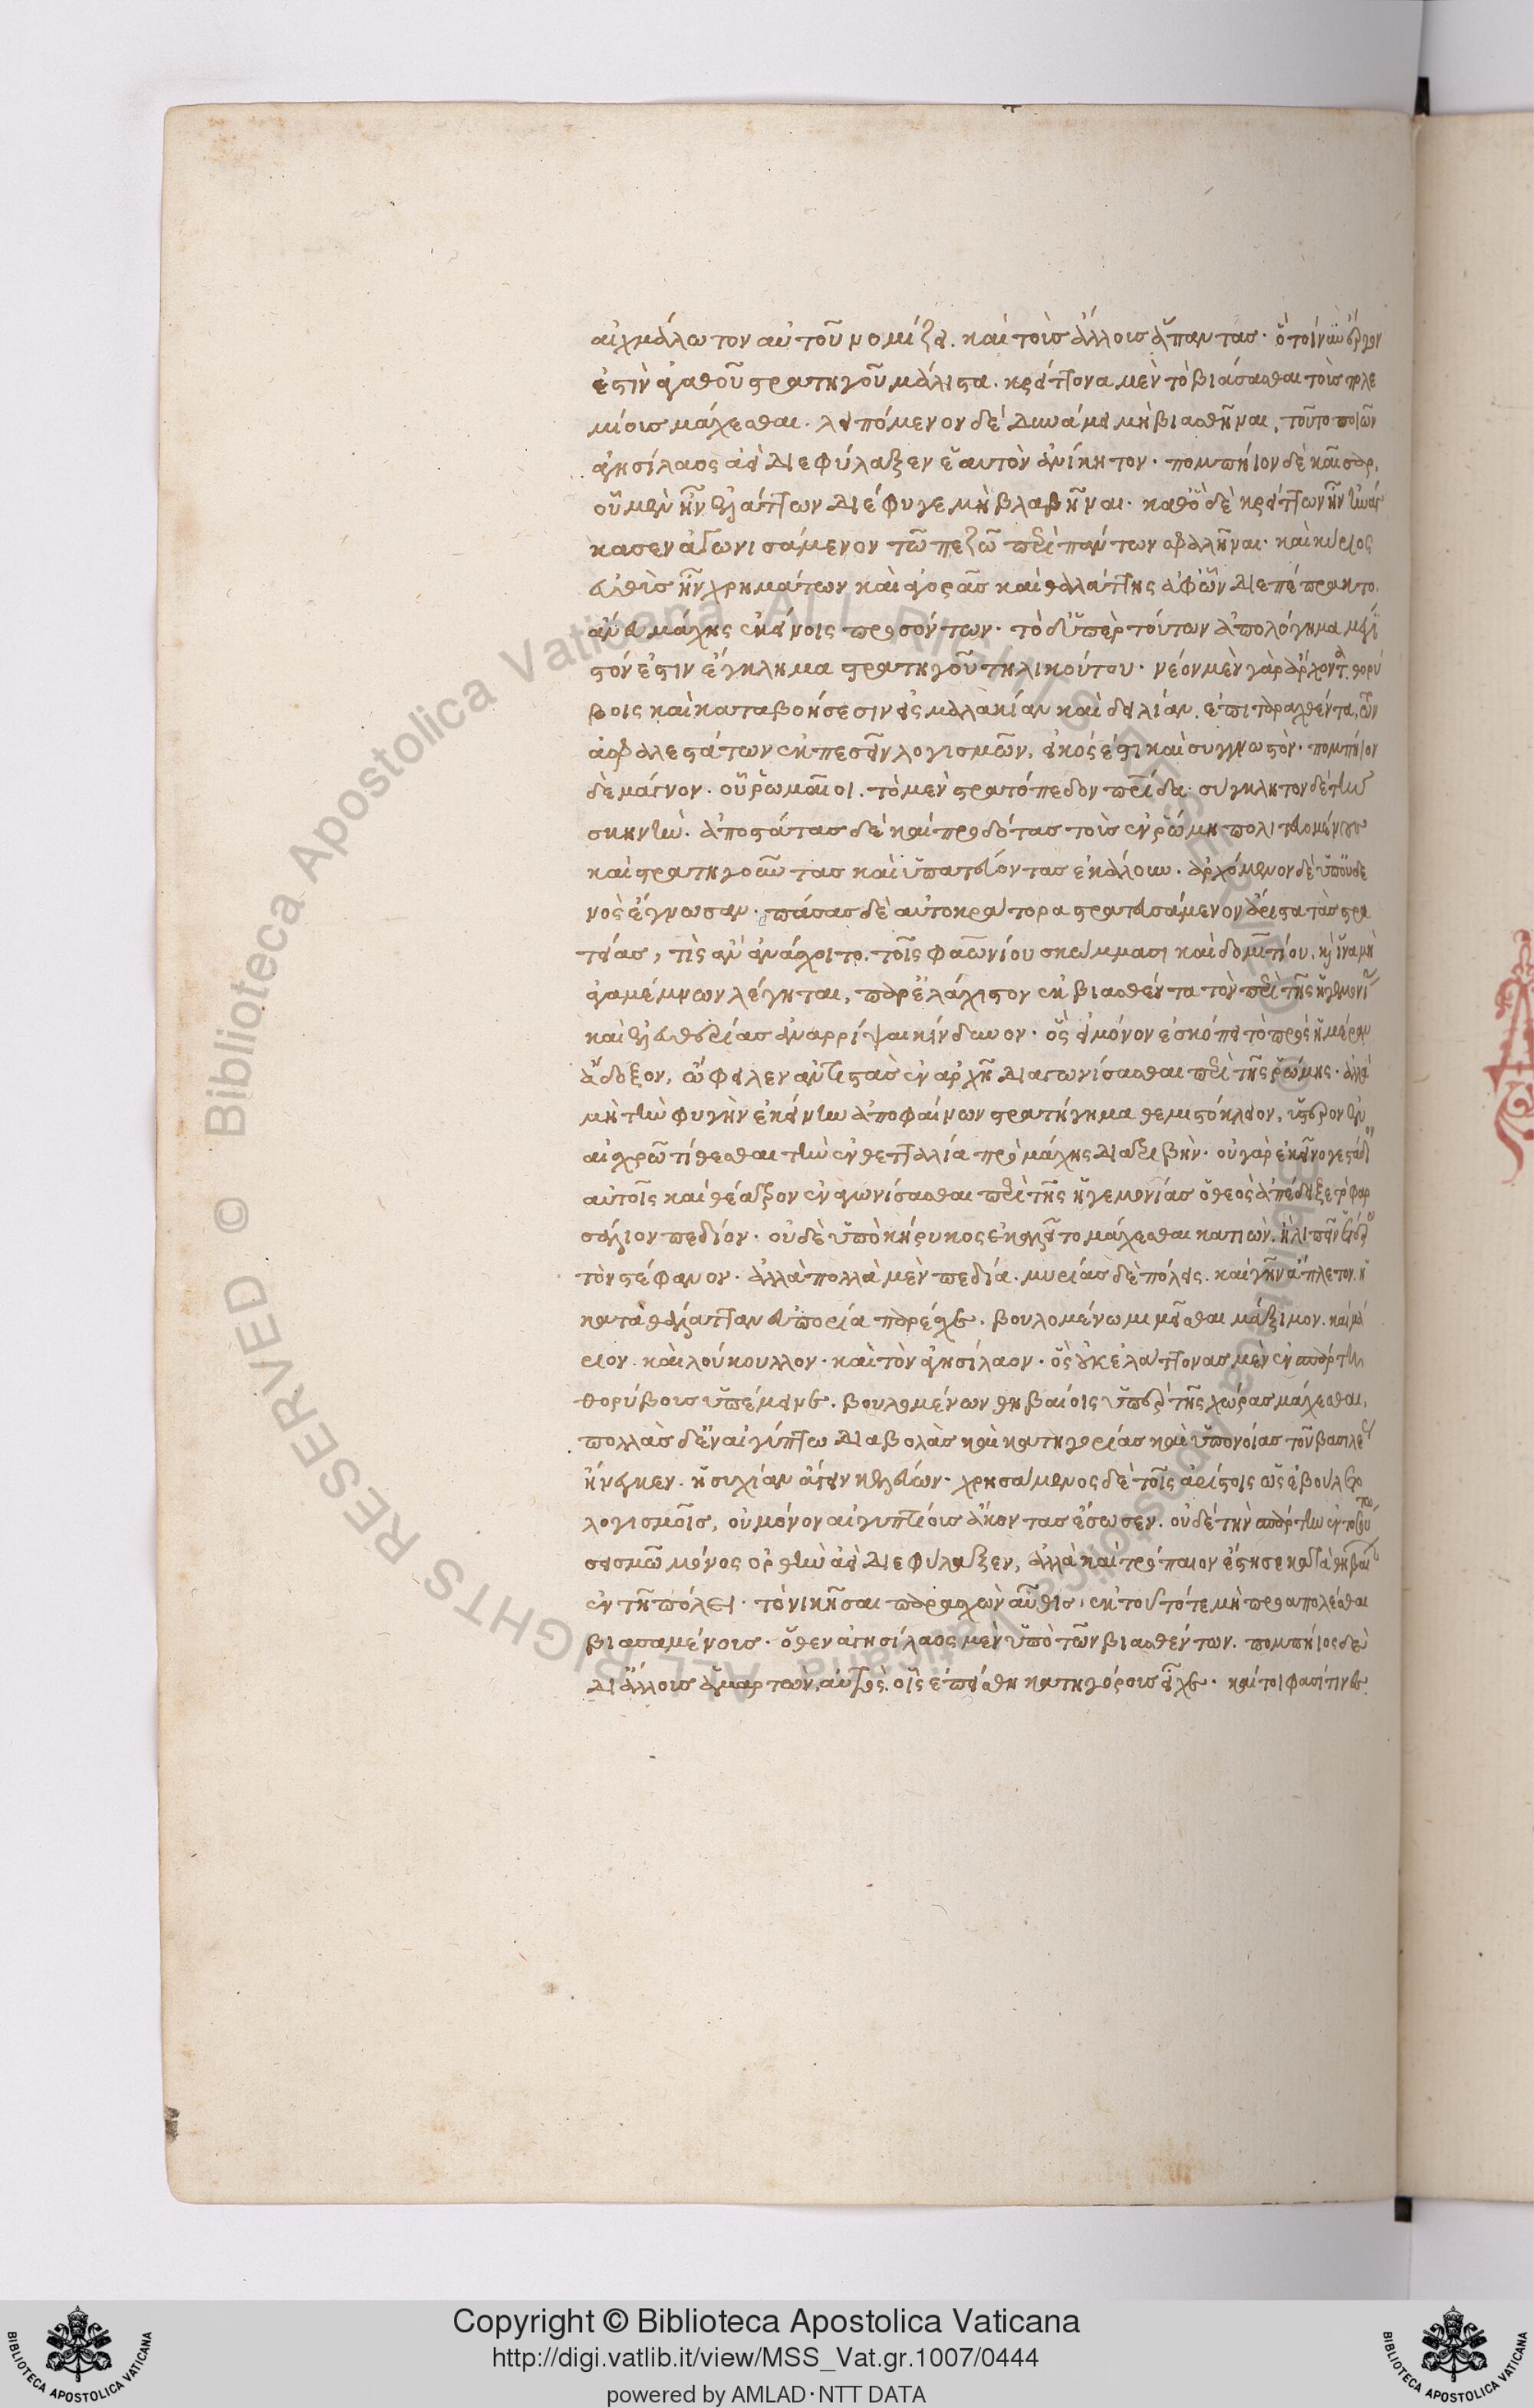 αἰχμάλωτον αὐτοῦ νομίζει. καὶ τοῖς ἄλλοις ἅπαντας. ὃ τοίνυν ἔργον
ἐστὶν ἀγαθοῦ στρατηγοῦ μάλιστα. κρείττονα μὲν τὸ βιάσασθαι τοὺς πολε
μίοις μάχεσθαι. λειπόμενον δὲ δυνάμει μὴ βιασθῆναι, τοῦτο ποιῶν
ἀγησίλαος ἀεὶ διεφύλαξεν ἑαυτὸν ἀνίκητον. πομπήιον δὲ καῖσαρ,
οὗ μὲν ἦν ἐλάττων διέφυγε μὴ βλαβῆναι. καθὃ δὲ κρείττων ἦν ἠνάγ
κασεν ἀγωνισάμενον τῷ πεζῷ περὶ πάντων σφαλῆναι. καὶ κύριος
εὐθὺς ἦν χρημάτων καὶ ἀγορᾶς καὶ θαλάττης ἀφ' ὧν διεπέπρακτο.
ἄνευ μάχης ἐκείνοις προσόντων. τὸ δ' ὑπὲρ τούτων ἀπολόγημα μέγι
στόν ἐστιν ἔγκλημα στρατηγοῦ τηλικούτου. νέον μὲν γὰρ ἄρχοντα θορύ
βοις καὶ καταβοήσεσιν εἰς μαλακίαν καὶ δειλίαν. ἐπιταραχθέντα, τῶν
ἀσφαλεστάτων ἐκπεσεῖν λογισμῶν, εἰκός ἐστι καὶ συγγνωστὸν. πομπήιον
δὲ μάγνον. οὗ ῥωμαῖοι. τὸ μὲν στρατόπεδον πατρίδα. σύγκλητον δὲ τὴν
σκηνὴν. ἀποστάτας δὲ καὶ προδότας τοὺς ἐν ῥώμῃ πολιτευομένους
καὶ στρατηγοῦντας καὶ ὑπατεύοντας ἐκάλουν. ἀρχόμενον δὲ ὑπ' οὐδε
νὸς ἔγνωσαν. πάσας δὲ αὐτοκράτορα στρατευσάμενον ἄριστα τὰς στρα
τείας, τίς ἂν ἀνάσχοιτο. τοῖς φαωνίου σκώμμασι καὶ δομιτίου. καὶ ἵνα μὴ
ἀγαμέμνων λέγηται, παρ' ἐλάχιστον ἐκβιασθέντα τὸν περὶ τῆς ἡγεμονίας
καὶ ἐλευθερίας ἀναρρίψαι κίνδυνον. ὃς εἰ μόνον ἐσκόπει τὸ πρὸς ἡμέραν
ἄδοξον, ὤφειλεν ἀντιστὰς ἐν ἀρχῇ διαγωνίσασθαι περὶ τῆς ῥώμης. ἀλλὰ
μὴ τὴν φυγὴν ἐκείνην ἀποφαίνων στρατήγημα θεμιστόκλειον, ὕστερον ἐν
αἰσχρῷ τίθεσθαι τὴν ἐν θετταλίᾳ πρὸ μάχης διατριβὴν. οὐ γὰρ ἐκεῖνο γε στάδιον
αὐτοῖς καὶ θέατρον ἐναγωνίσασθαι περὶ τῆς ἡγεμονίας ὁ θεὸς ἀπέδειξε τὸ φαρ
σάλιον πεδίον. οὐδὲ ὑπὸ κήρυκος ἐκαλεῖτο μάχεσθαι κατιὼν. ἢ λιπεῖν ἑτέρῳ
τὸν στέφανον. ἀλλὰ πολλὰ μὲν πεδία. μυρίας δὲ πόλεις. καὶ γῆν ἄπλετον. ἡ
κατὰ θάλατταν εὐπορία παρέσχε. βουλομένῳ μιμεῖσθαι μάξιμον. καὶ μά
ριον. καὶ λούκουλλον. καὶ τὸν ἀγησίλαον. ὃς οὐκ ἐλάττονας μὲν ἐν σπάρτῃ
θορύβους ὑπέμεινε. βουλομένων θηβαίοις ὑπὲρ τῆς χώρας μάχεσθαι,
πολλὰς δ' ἐν αἰγύπτῳ διαβολὰς καὶ κατηγορίας καὶ ὑπονοίας τοῦ βασιλέως
ἤνεγκεν. ἡσυχίαν ἄγειν κελεύων. χρησάμενος δὲ τοῖς ἀρίστοις ὡς ἐβούλετο
λογισμοῖς, οὐ μόνον αἰγυπτίους ἄκοντας ἔσωσεν. οὐδὲ τὴν σπάρτην ἐν τοσούτῳ
σεισμῷ μόνος ὀρθὴν ἀεὶ διεφύλαξεν, ἀλλὰ καὶ τρόπαιον ἔστησε κατὰ θηβαίων
ἐν τῇ πόλει. τὸ νικῆσαι παρασχὼν αὖθις, ἐκ τοῦ τότε μὴ προαπολέσθαι
βιασαμένοις. ὅθεν ἀγησίλαος μὲν ὑπὸ τῶν βιασθέντων. πομπήιος δὲ
δι' ἄλλους ἁμαρτὼν, αὐτοὺς οἷς ἐπείσθη κατηγόρους εἶχε. καίτοι φασί τινες